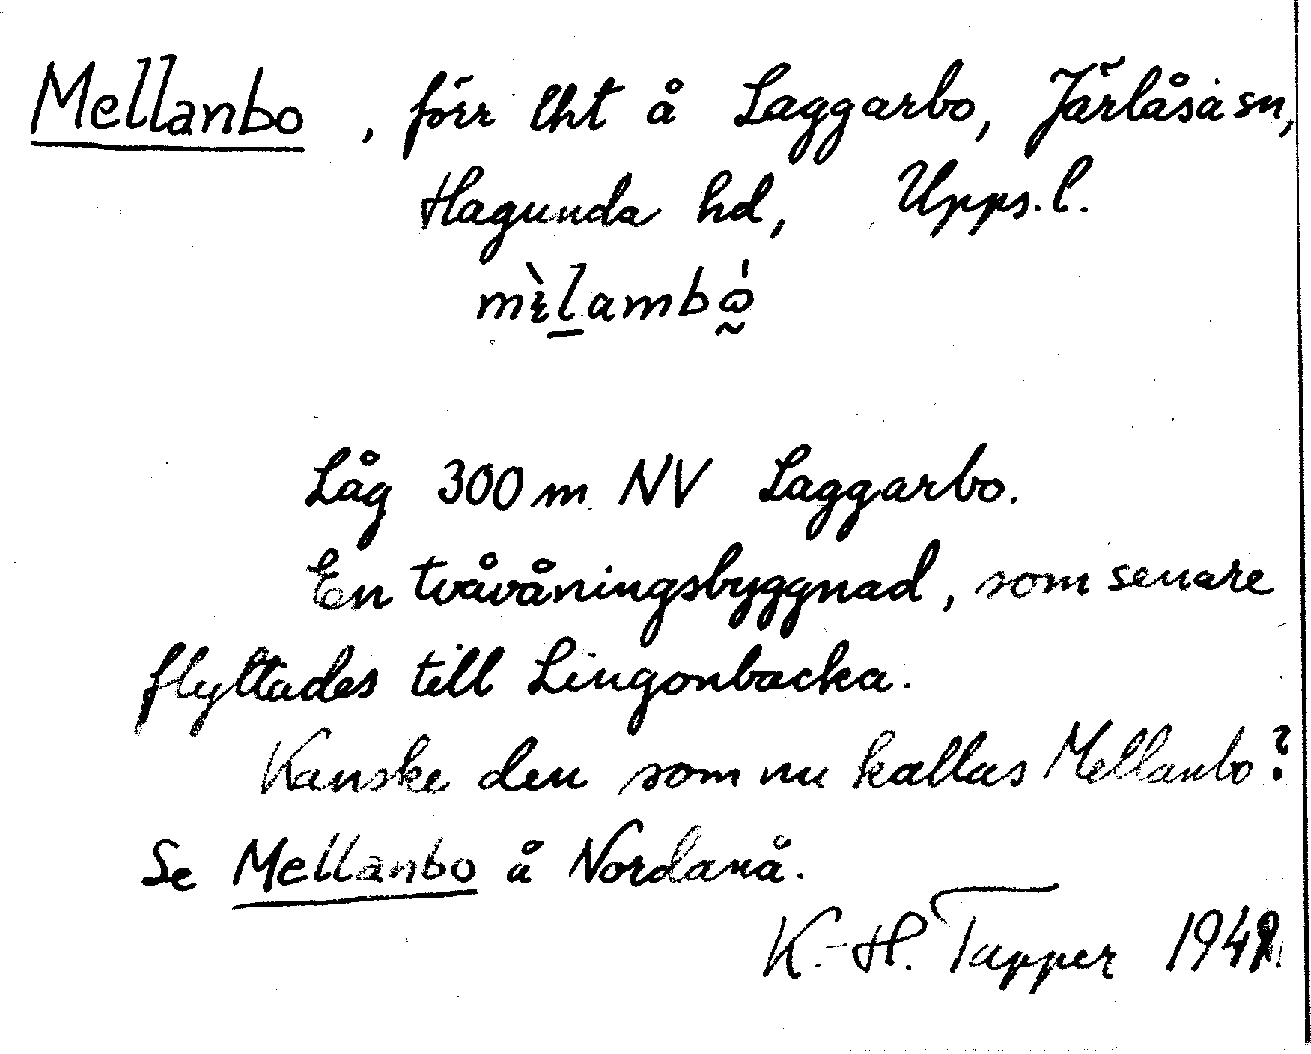 Mellanbo, förr lht å Laggarbo, Järlåsa sn,
Hagunda hd, Upps. l.
Låg 300 m NV Laggarbo.
En tvåvåningsbyggnad, som senare
flyttades till Lingonbacka.
Kanske den som nu kallas Mellanbo?
Se Mellanbo å Nordanå.
K.-H. Tapper